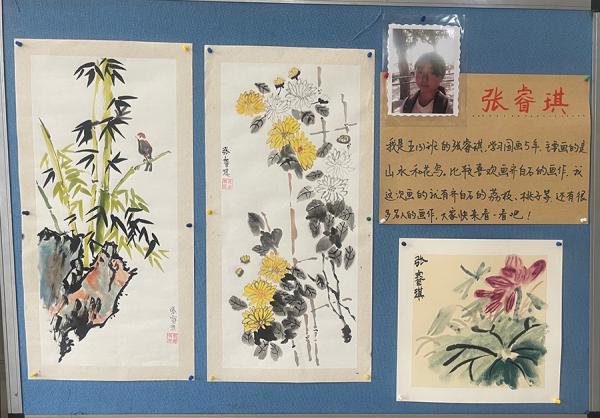 张睿琪
我是五(3)班的张睿琪,学习国画5年,主要画的是
山水和花鸟。比较喜欢画齐白石的画作,我
这次画的就有齐白石的荔枝、桃子等,还有很
多名人的画作,大家快来看一看吧!
张睿琪
张睿琪
张睿琪